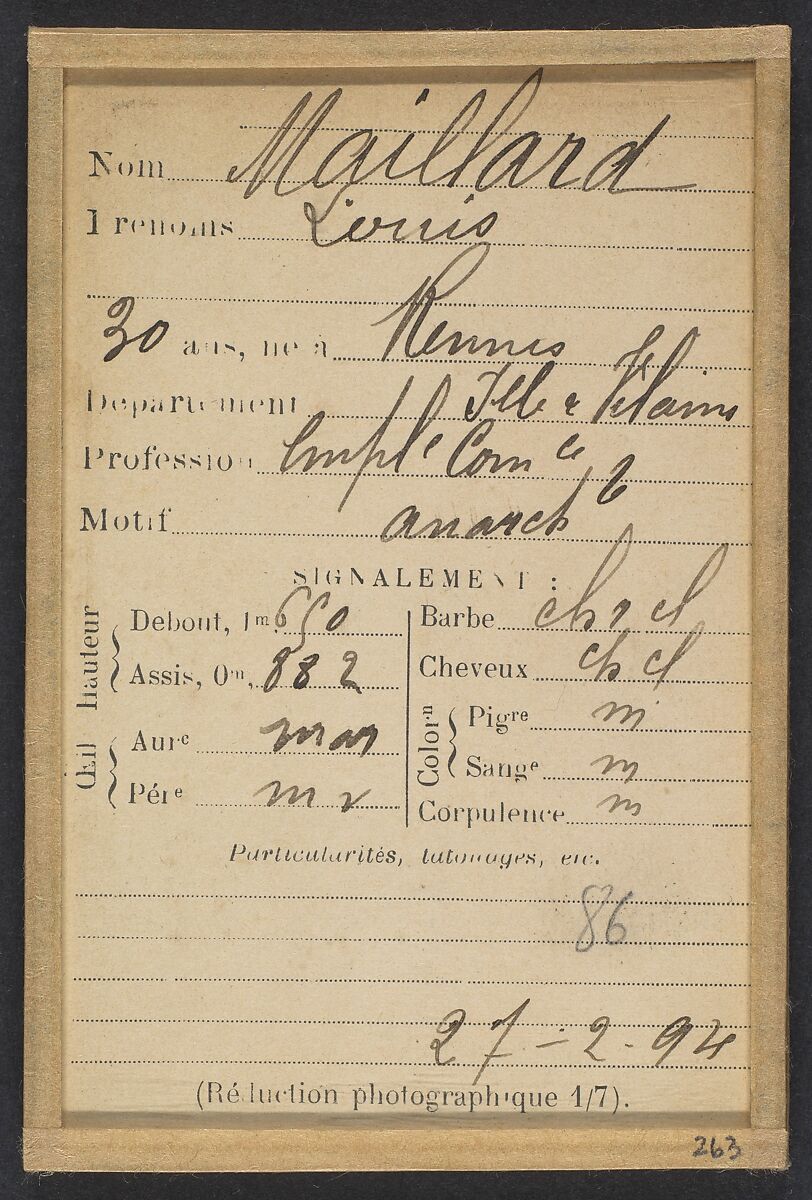 Nom Maillard
Prénoms Louis
30 ans, né à Rennes
Département Ille & Vilaine
Profession Emplé Comce
Motif anarch
SIGNALEMENT :
Hauteur
Debout, 1m, 650
Assis, 0m, 882
Œil
Aure mar
Pére m v
Barbe ch cl
Cheveux ch cl
Colorn
Pigre m
Sange m
Corpulence m
Particularités, tatouages, etc.
86
27-2-94
(Réduction photographique 1/7).
263